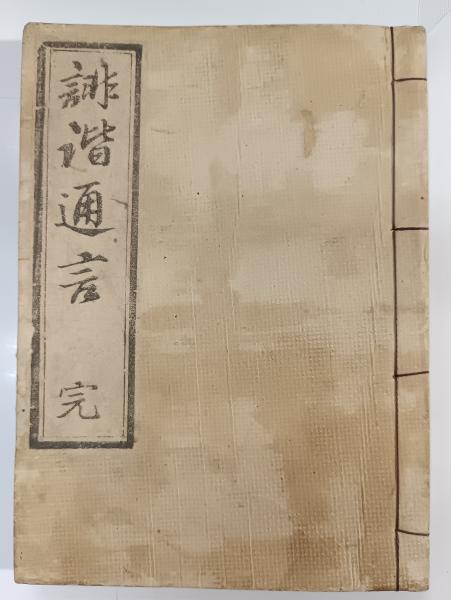 誹諧通言 完